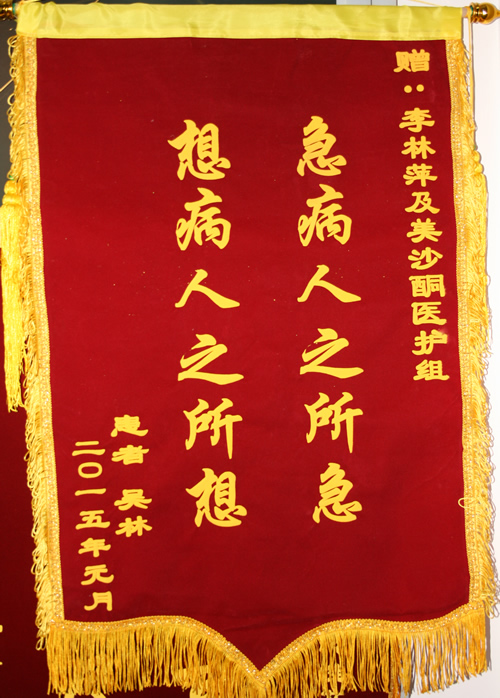 赠：李林萍及美沙酮医护组
急病人之所急
想病人之所想
患者 吴林
二〇一五年元月